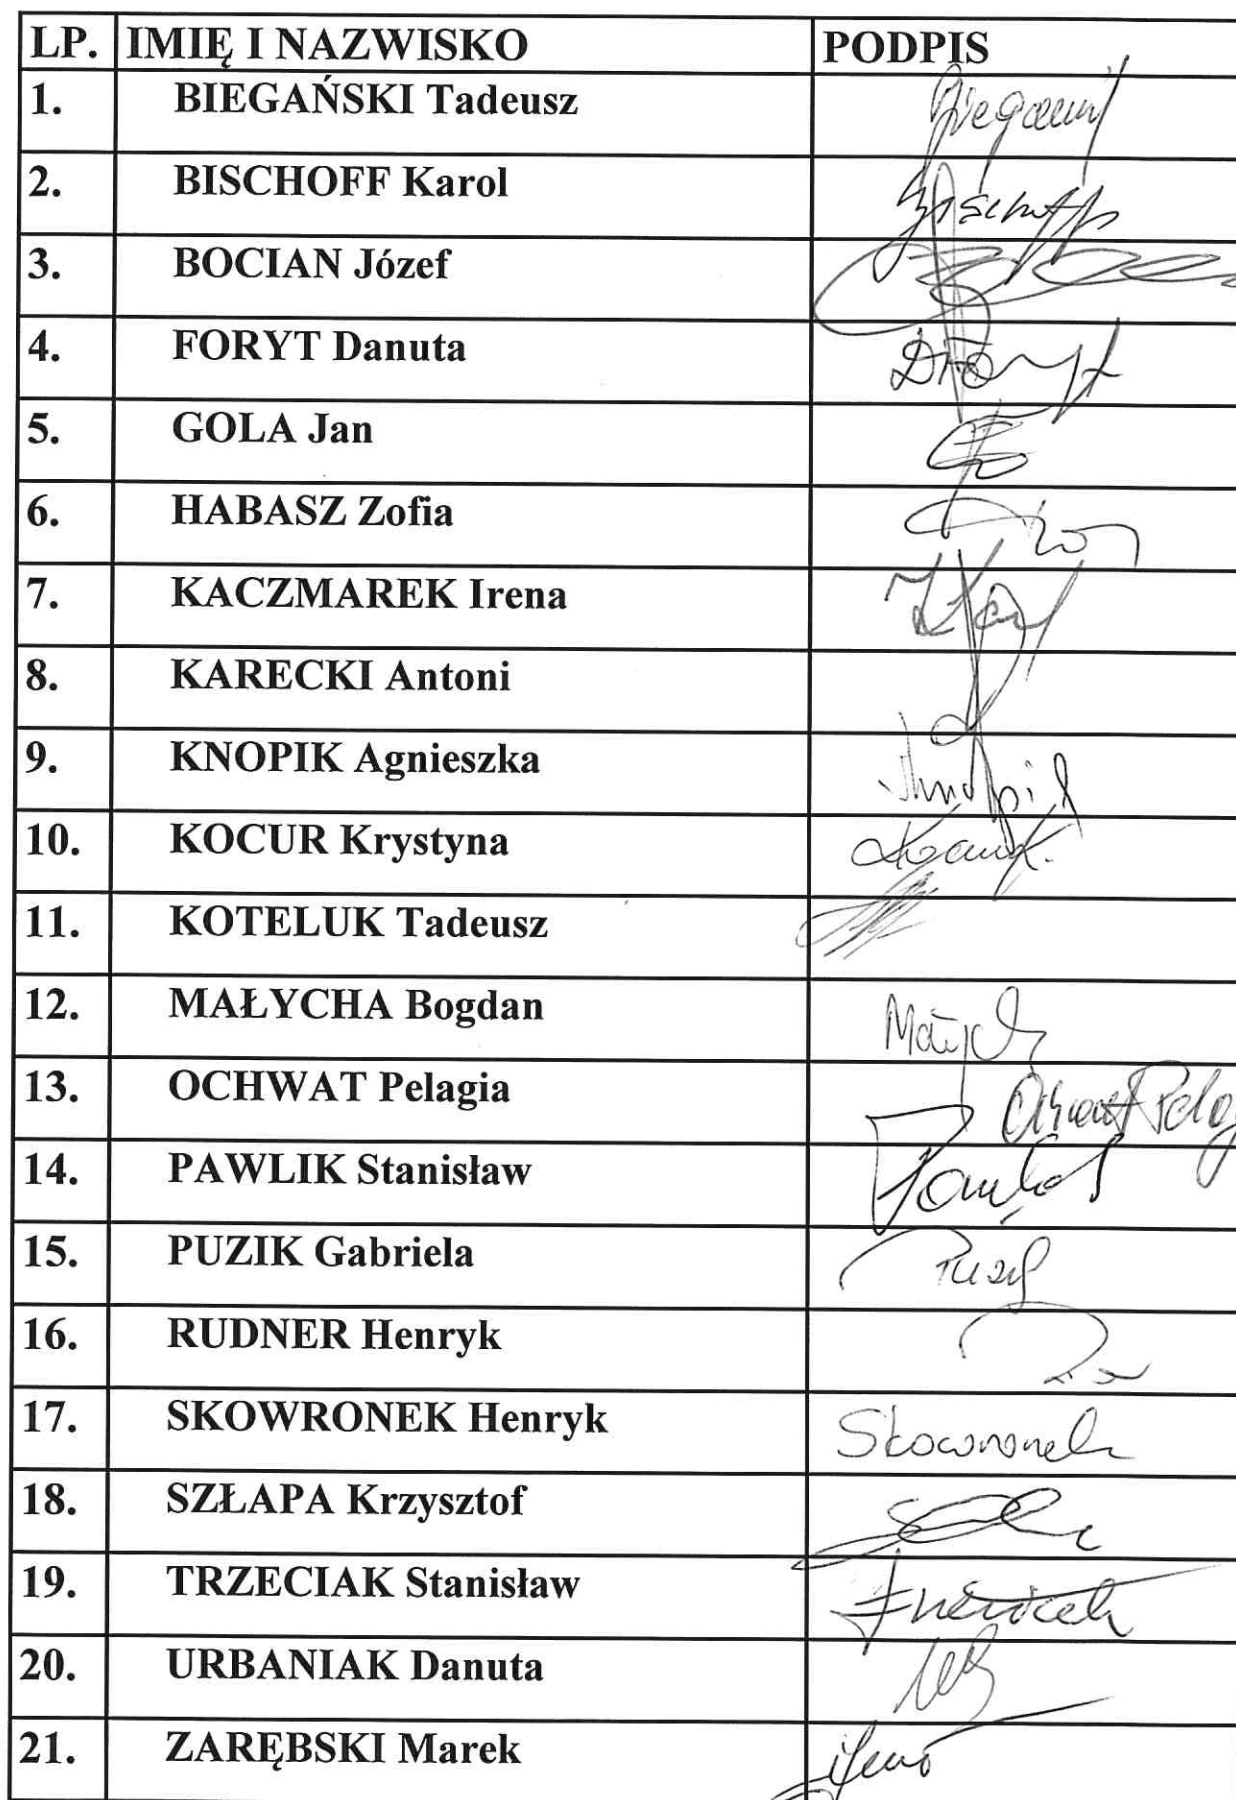 LP. IMIĘ I NAZWISKO PODPIS
1. BIEGAŃSKI Tadeusz
2. BISCHOFF Karol Bischoff
3. BOCIAN Józef
4. FORYT Danuta DForyt
5. GOLA Jan
6. HABASZ Zofia
7. KACZMAREK Irena
8. KARECKI Antoni
9. KNOPIK Agnieszka Knopik
10. KOCUR Krystyna
11. KOTELUK Tadeusz
12. MAŁYCHA Bogdan
13. OCHWAT Pelagia Ochwat
14. PAWLIK Stanisław
15. PUZIK Gabriela
16. RUDNER Henryk
17. SKOWRONEK Henryk Skowronek
18. SZŁAPA Krzysztof
19. TRZECIAK Stanisław Trzeciak
20. URBANIAK Danuta
21. ZARĘBSKI Marek